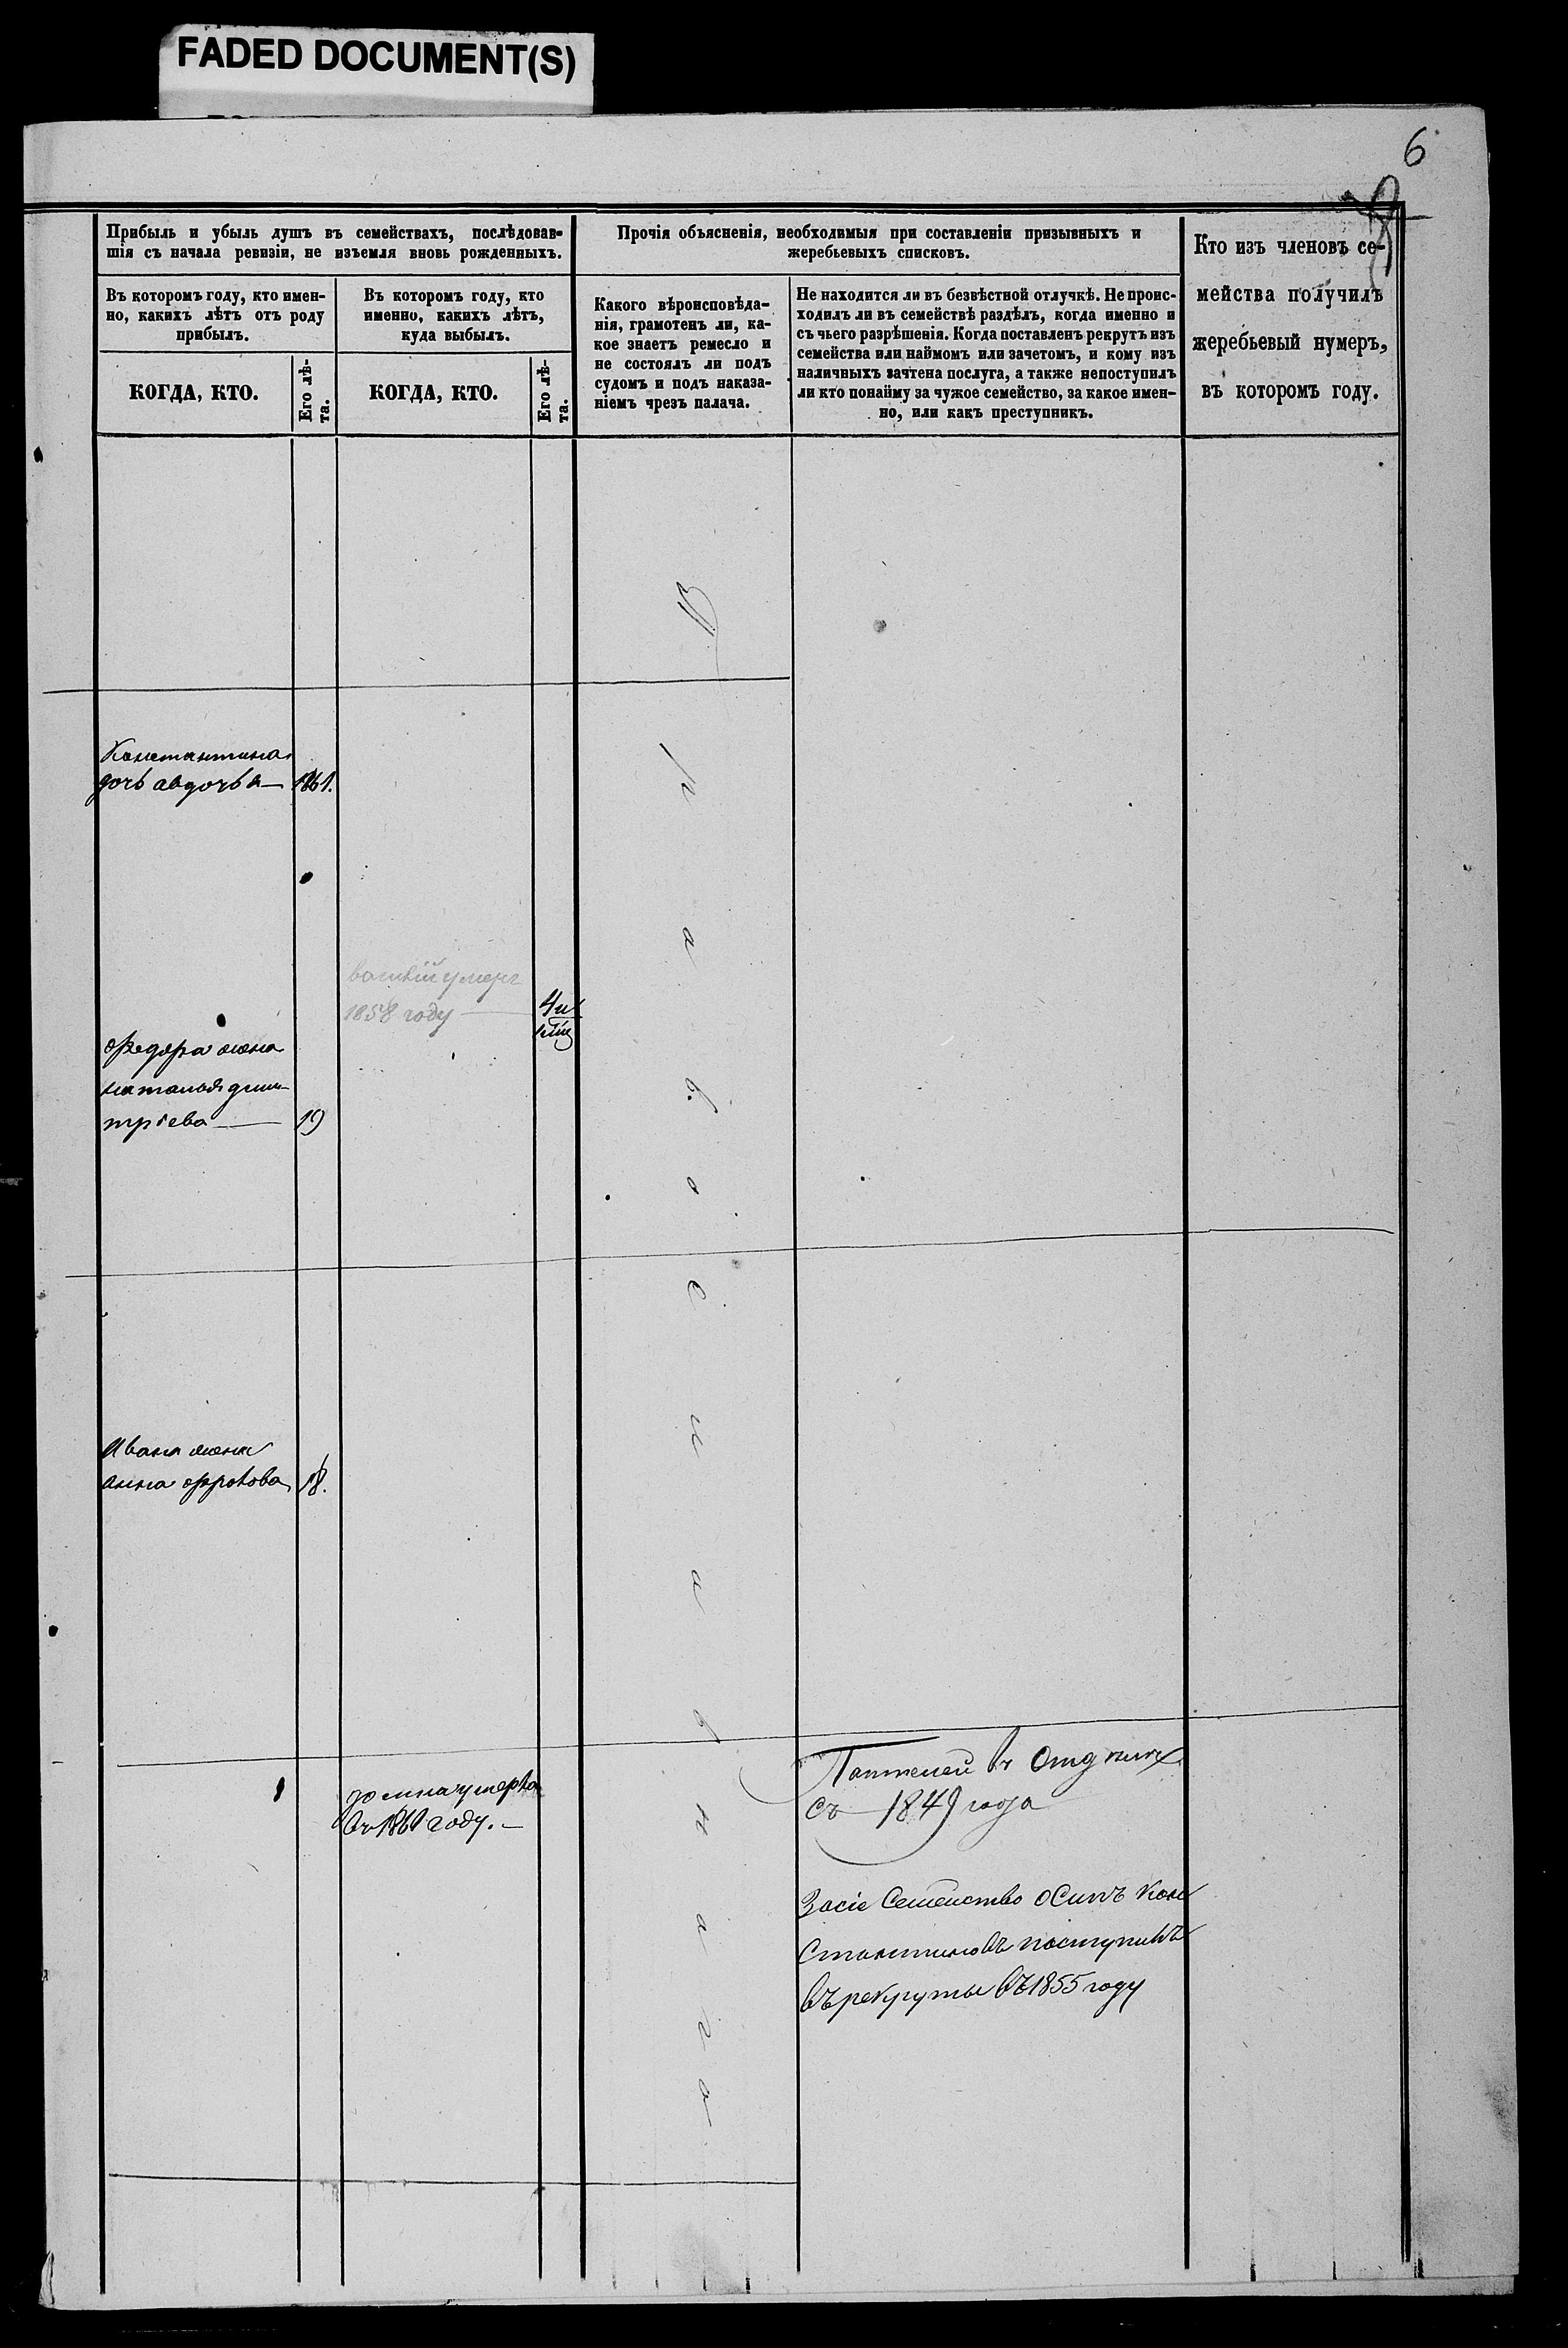 FADED DOCUMENT(S)
6
Прибыль и убыль душъ въ семействахъ, послѣдовав-
шія съ начала ревизіи, не изъемля вновь рожденныхъ.
Въ которомъ году, кто имен-
но, какихъ лѣтъ отъ роду
прибылъ.
КОГДА, КТО.
Его лѣ-
та.
Въ которомъ году, кто
именно, какихъ лѣтъ,
куда выбылъ.
КОГДА, КТО.
Его лѣ-
та.
Прочія объясненія, необходимыя при составленіи призывныхъ и
жеребьевыхъ списковъ.
Какого вѣроисповѣда-
нія, грамотенъ ли, ка-
кое знаетъ ремесло и
не состоялъ ли подъ
судомъ и подъ наказа-
ніемъ чрезъ палача.
Не находится ли въ безвѣстной отлучкѣ. Не проис-
ходилъ ли въ семействѣ раздѣлъ, когда именно и
съ чьего разрѣшенія. Когда поставленъ рекрутъ изъ
семейства или наймомъ или зачетомъ, и кому изъ
наличныхъ зачтена послуга, а также непоступилъ
ли кто понайму за чужое семейство, за какое имен-
но, или какъ преступникъ.
Кто изъ членовъ се-
мейства получилъ
жеребьевый нумеръ,
въ которомъ году.
Константина
дочь авдотья — 1861.
василій умеръ
1858 году —
федора жена
наталья дми-
тріева — 19
Ивана жена
анна фролова 18.
умерла
въ 1861 году. —
Пантелей въ
съ 1849 года
Засіе Семейство осипъ Кон
стантиновъ поступилъ
въ рекруты въ 1855 году